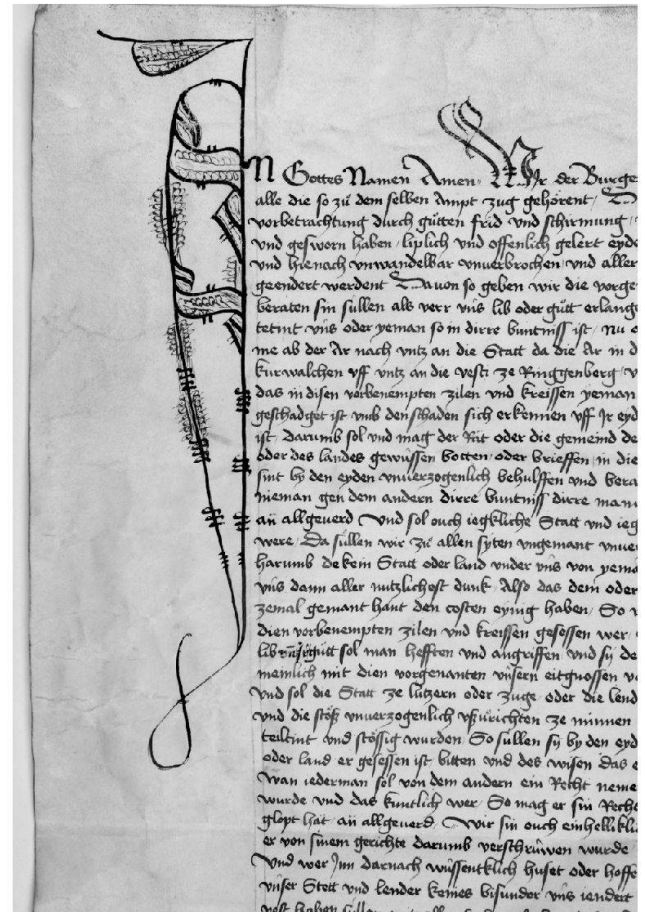 IN Gottes Namen Amen. Wir der Burge
alle die so zuͦ dem selben Ampt zug gehoͤrent
vorbetrachtung durch guͤtten frid und schirmung
und gesworn haben liplich und offenlich gelert eyde
und hienach unwandelbar unuerbrochen und aller
geendert werdent Dauon so geben wir die vorge
beraten sin sullen als verr uns lib oder guͦtt erlang
uns oder yeman so in dirre buntniss ist nu
me ab der Ar nach untz an die Statt da die Ar in d
kurwalchen uff untz an die vesti ze Ringgenberg
das in disen vorbenempten zilen und kreissen yeman
geschadget ist umb den schaden sich erkennen uff Ir eyd
ist darumb sol und mag der Rat oder die gemeind de
oder des landes gewussen botten oder brieffen in die
sint by den eyden unuerzogenlich behulffen und bera
nieman gen dem andern dirre buntniss dirre man
an allgeuerd Und sol ouch iegkliche Statt und ieg
were Da sullen wir zuͦ allen syten ungemant unuer
harumb dekein Statt oder land under uns von yema
uns dann aller nutzlichest dunk Also das dem oder
zemal gemant hant den costen eynig haben So
dien vorbenempten zilen und kreissen gesessen wer
lib guͦtt sol man hefften und angriffen und sy de
meinlich mit dien vorgenanten unsern eitgnossen v
und sol die Statt ze lutzern oder zuge oder die lend
und die stoͤß unuerzogenlich ußzurichten ze minnen
und stoͤssig wurden So sullen sy by den eyd
oder land er gesessen ist bitten und des wisen das e
wan iederman sol von dem andern ein Recht neme
wurde und das kuntlich wer So mag er sin Recht
glopt hat an allgeuerd Wir sin ouch einhellikli
er von sinem gerichte darumb verschruwen wurde
Und wer Inn darnach wussentklich huset oder hoffe
unser Stett und lender keines bisunder uns iendert
vest haben sullen